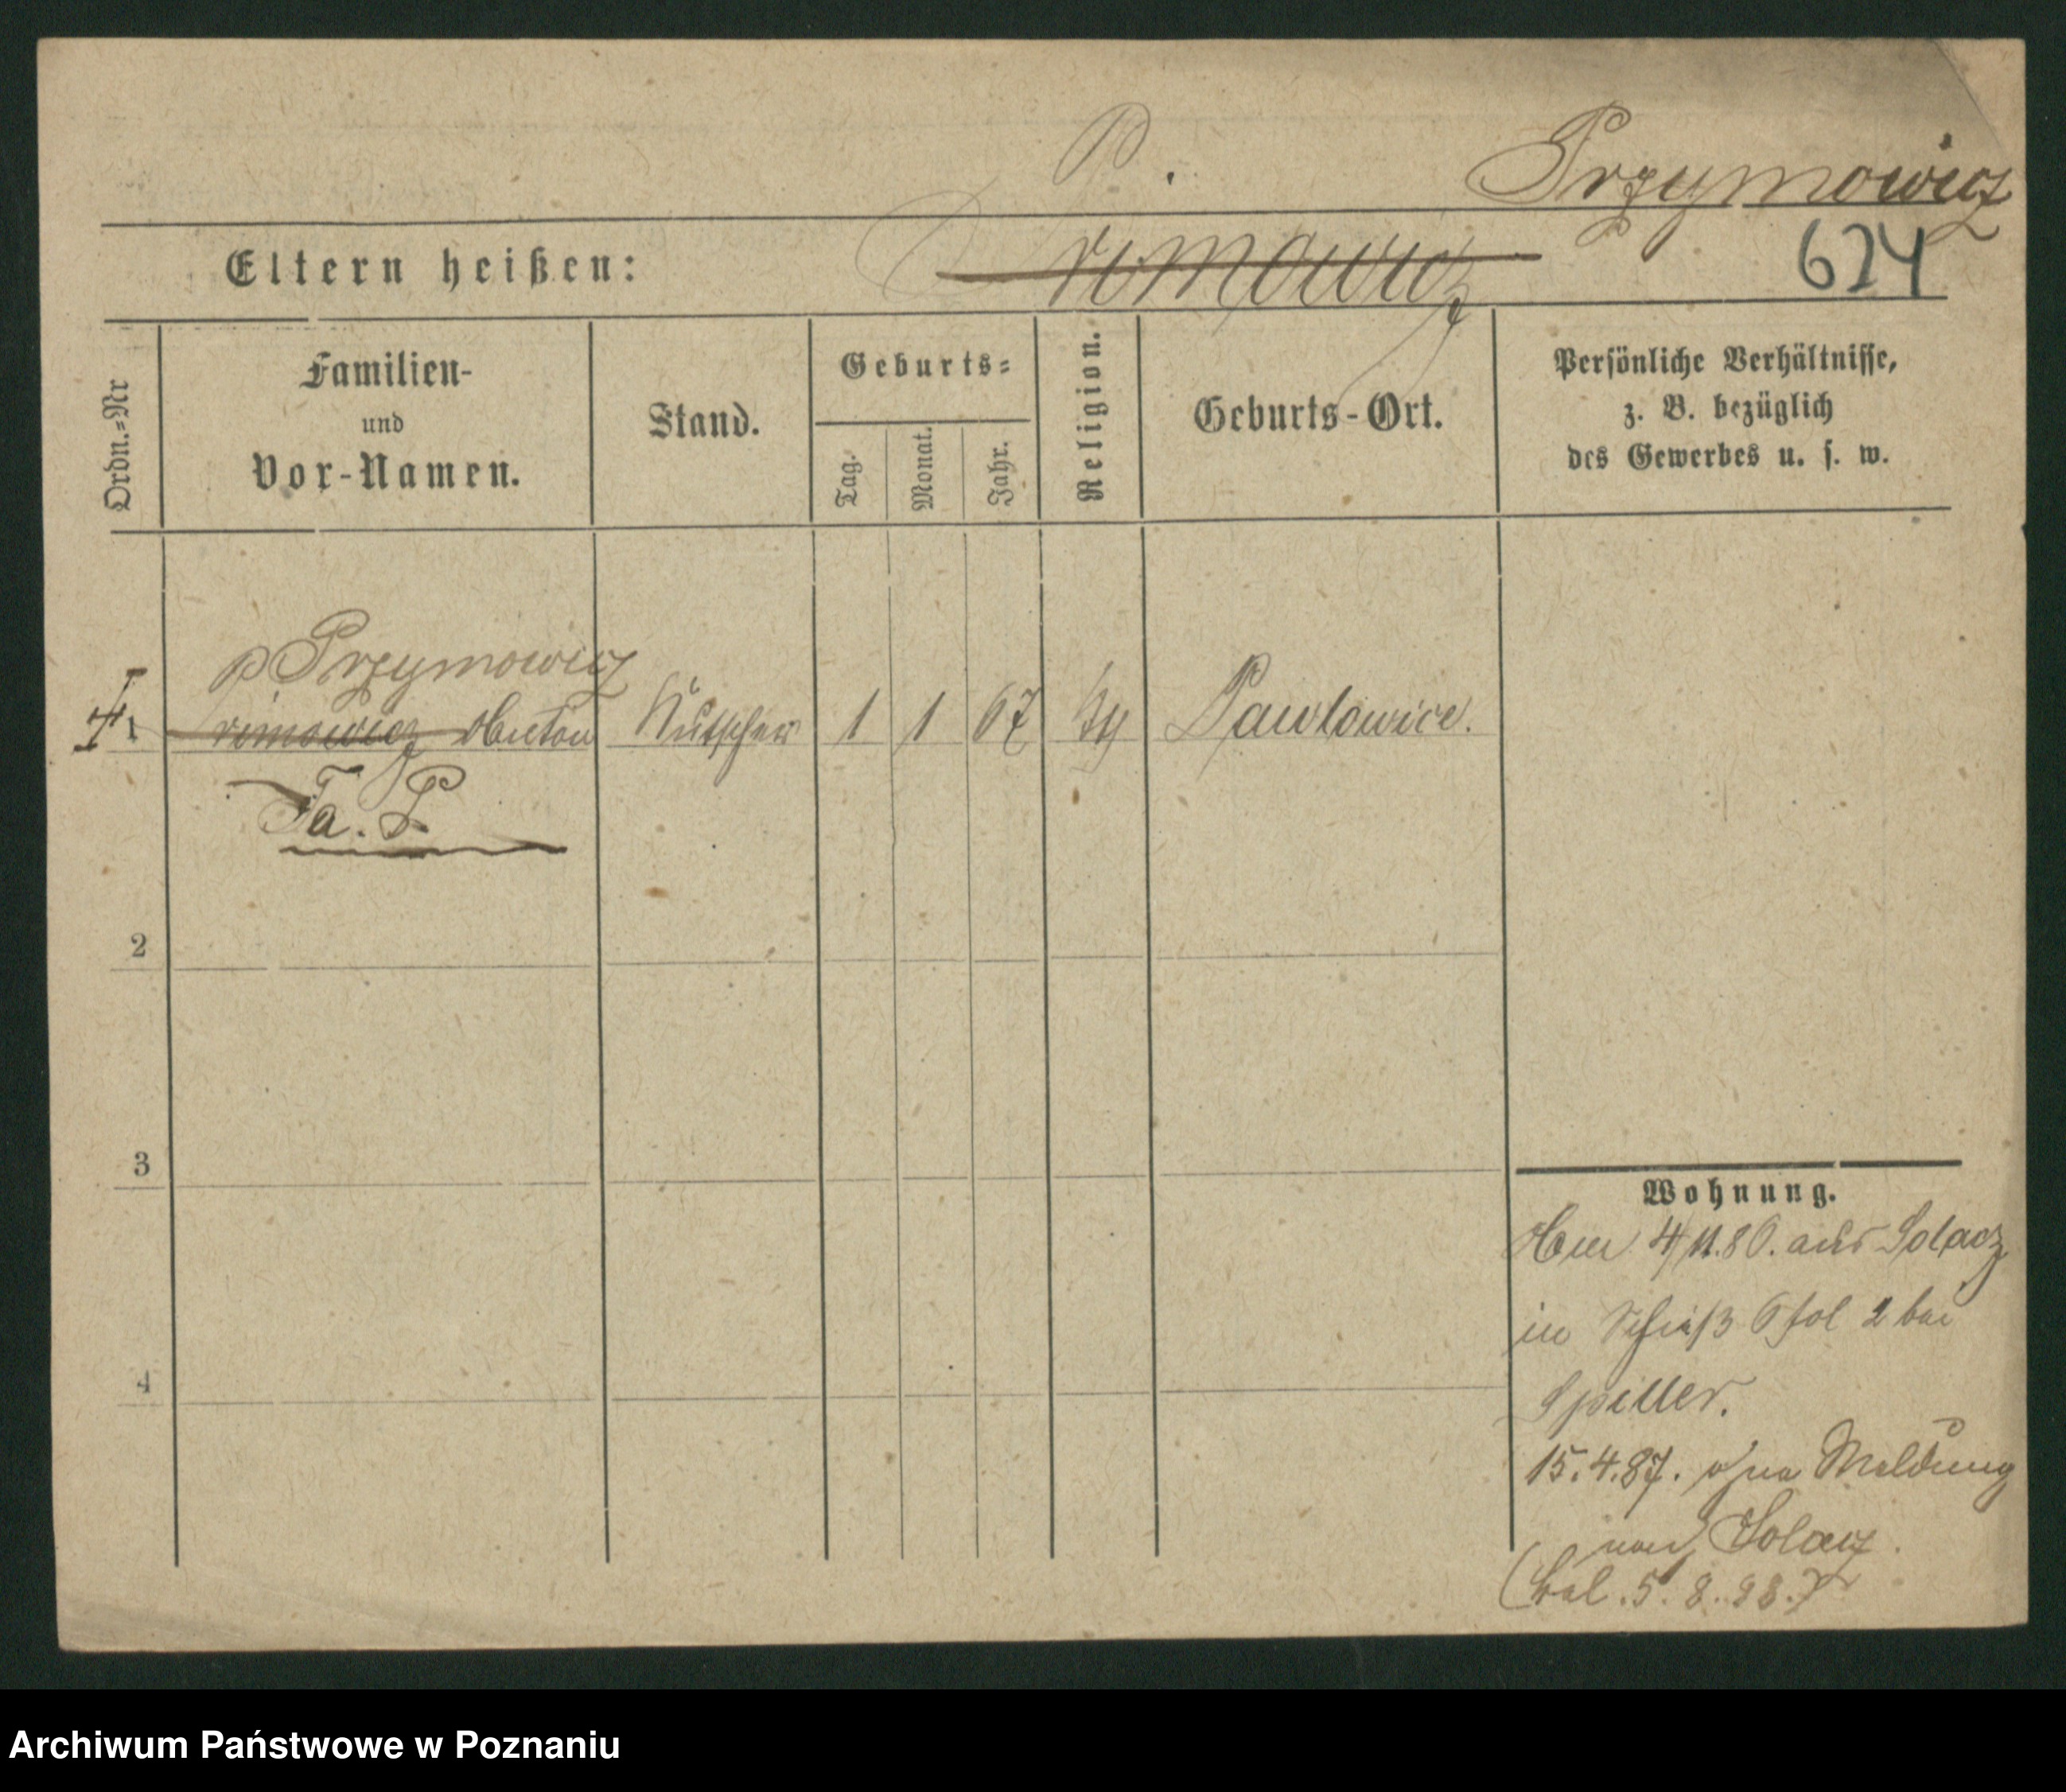 P.
Przymowicz
Eltern heißen:
Primowicz
624
Ordn.=Nr
Familien-
und
Vor-Namen.
Stand.
Geburts=
Tag.
Monat.
Jahr.
Religion.
Geburts-Ort.
Persönliche Verhältnisse,
z. B. bezüglich
des Gewerbes u. s. w.
P Przymowicz
1 rimowicz Anton Kutscher 1 1 67 Pawlowice.
Fa. P
2
3
4
Wohnung.
4/11.86. aus Solacz
in
Spiller.
15.4.87. ohne Meldung
nach Solacz.
5.8.98.)
Archiwum Państwowe w Poznaniu